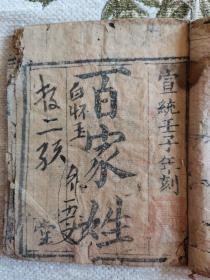 宣統壬子年刻
百家姓
白怀玉
教二孩
堂